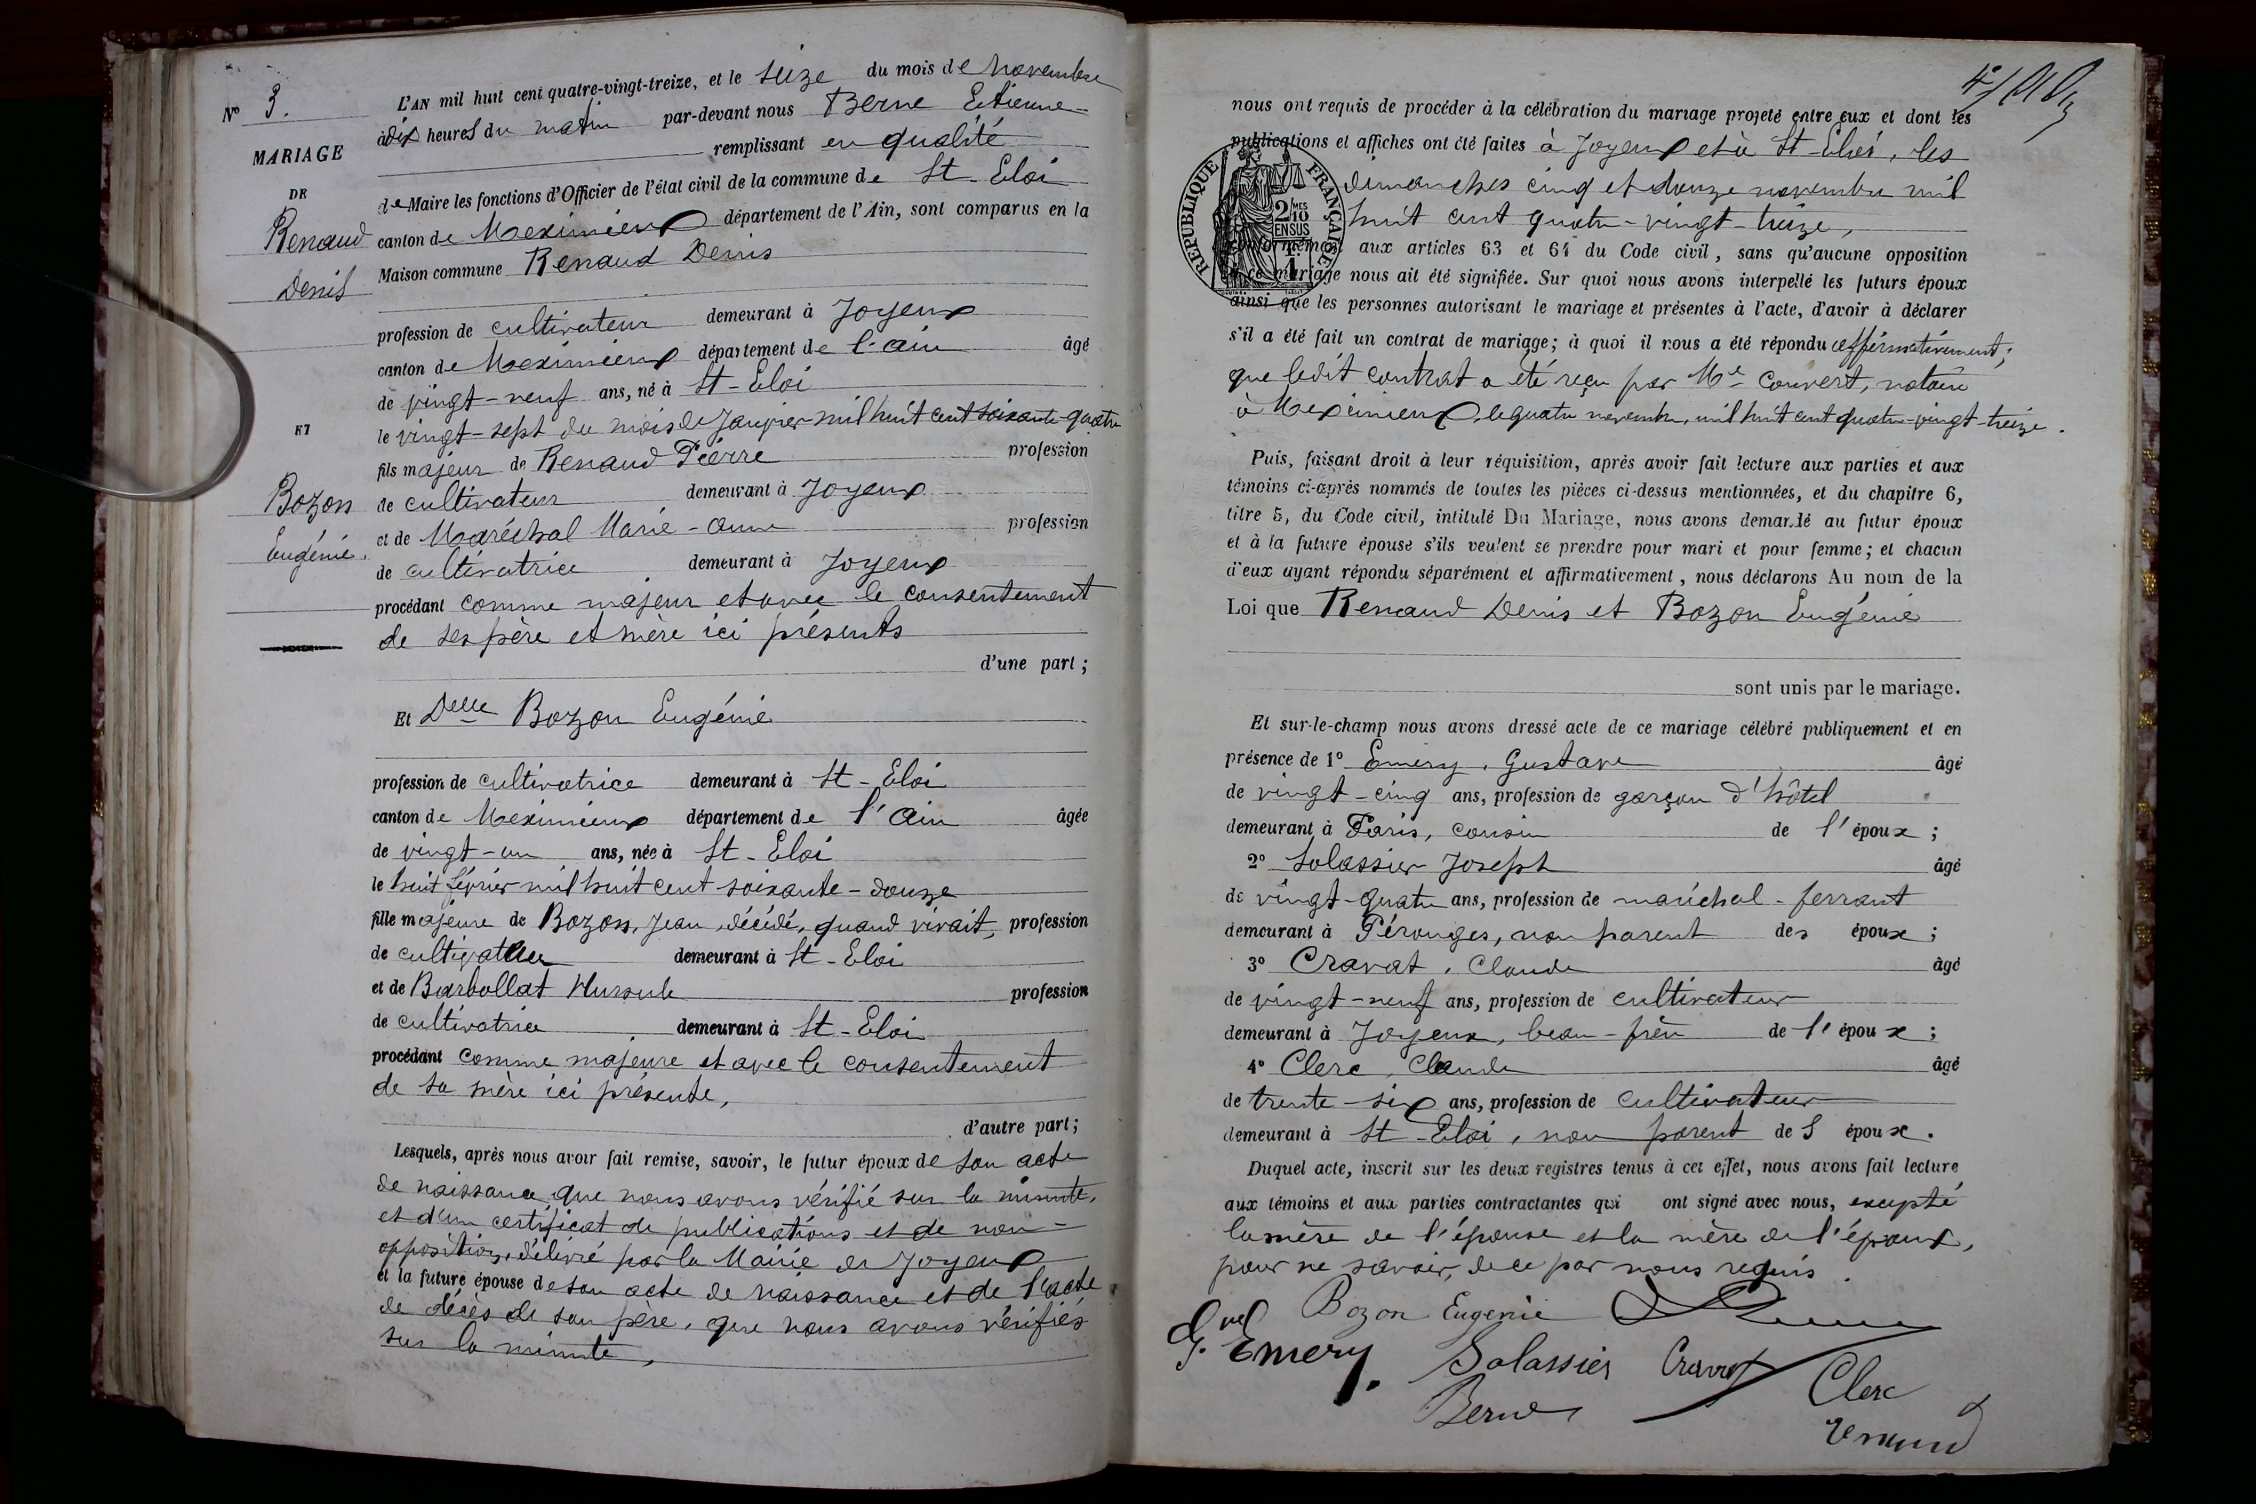 N° 3.
MARIAGE
DE
Renaud
Denis
ET
Bozon
Eugénie.
L'AN mil huit cent quatre-vingt-treize, et le seize du mois de Novembre
à dix heures du matin par-devant nous Berne Etienne
remplissant en qualité
de Maire les fonctions d'Officier de l'état civil de la commune de St-Eloi
canton de Meximieux département de l'Ain, sont comparus en la
Maison commune Renaud Denis
profession de cultivateur demeurant à Joyeux
canton de Meximieux département de l'ain âgé
de vingt-neuf ans, né à St-Eloi
le vingt-sept du mois de Janvier mil huit cent soixante-quatre
fils majeur de Renaud Pierre profession
de cultivateur demeurant à Joyeux
et de Maréchal Marie-anne profession
de cultivatrice demeurant à Joyeux
procédant comme majeur et avec le consentement
de ses père et mère ici présents
d'une part;
Et Delle Bozon Eugénie
profession de cultivatrice demeurant à St-Eloi
canton de Meximieux département de l'Ain âgée
de vingt-un ans, née à St-Eloi
le huit février mil huit cent soixante-douze
fille majeure de Bozon, Jean, décédé, quand vivait, profession
de cultivateur demeurant à St-Eloi
et de Barbollat Hursule profession
de cultivatrice demeurant à St-Eloi
procédant comme majeure et avec le consentement
de sa mère ici présente,
d'autre part;
Lesquels, après nous avoir fait remise, savoir, le futur époux de son acte
de naissance que nous avons vérifié sur la minute,
et d'un certificat de publications et de non-
opposition, délivré par la Mairie de Joyeux
et la future épouse de son acte de naissance et de l'acte
de décès de son père, que nous avons vérifiés
sur la minute,
nous ont requis de procéder à la célébration du mariage projeté entre eux et dont les
publications et affiches ont été faites à Joyeux et à St-Eloi, les
dimanches cinq et douze novembre mil
huit cent quatre-vingt-treize,
RÉPUBLIQUE FRANÇAISE
2/10 MES
EN SUS
1F
conformément aux articles 63 et 64 du Code civil, sans qu'aucune opposition
à ce mariage nous ait été signifiée. Sur quoi nous avons interpellé les futurs époux
ainsi que les personnes autorisant le mariage et présentes à l'acte, d'avoir à déclarer
s'il a été fait un contrat de mariage; à quoi il nous a été répondu affirmativement;
que ledit contrat a été reçu par Me Convert, notaire
à Meximieux, le quatre novembre, mil huit cent quatre-vingt-treize.
Puis, faisant droit à leur réquisition, après avoir fait lecture aux parties et aux
témoins ci-après nommés de toutes les pièces ci-dessus mentionnées, et du chapitre 6,
titre 5, du Code civil, intitulé Du Mariage, nous avons demandé au futur époux
et à la future épouse s'ils veulent se prendre pour mari et pour femme; et chacun
d'eux ayant répondu séparément et affirmativement, nous déclarons Au nom de la
Loi que Renaud Denis et Bozon Eugénie
sont unis par le mariage.
Et sur-le-champ nous avons dressé acte de ce mariage célébré publiquement et en
présence de 1° Emery, Gustave âgé
de vingt-cinq ans, profession de garçon d'hôtel
demeurant à Paris, cousin de l'époux;
2° Solassier Joseph âgé
de vingt-quatre ans, profession de maréchal-ferrant
demeurant à Pérouges, non parent des époux;
3° Cravat, Claude âgé
de vingt-neuf ans, profession de cultivateur
demeurant à Joyeux, beau-frère de l'époux;
4° Clerc, Claude âgé
de trente-six ans, profession de cultivateur
demeurant à St-Eloi, non parent des époux.
Duquel acte, inscrit sur les deux registres tenus à cet effet, nous avons fait lecture
aux témoins et aux parties contractantes qui ont signé avec nous, excepté
la mère de l'épouse et la mère de l'époux,
pour ne savoir, de ce par nous requis.
Bozon Eugenie
G. Emery. Solassier Cravat Clerc
Berne
Renaud